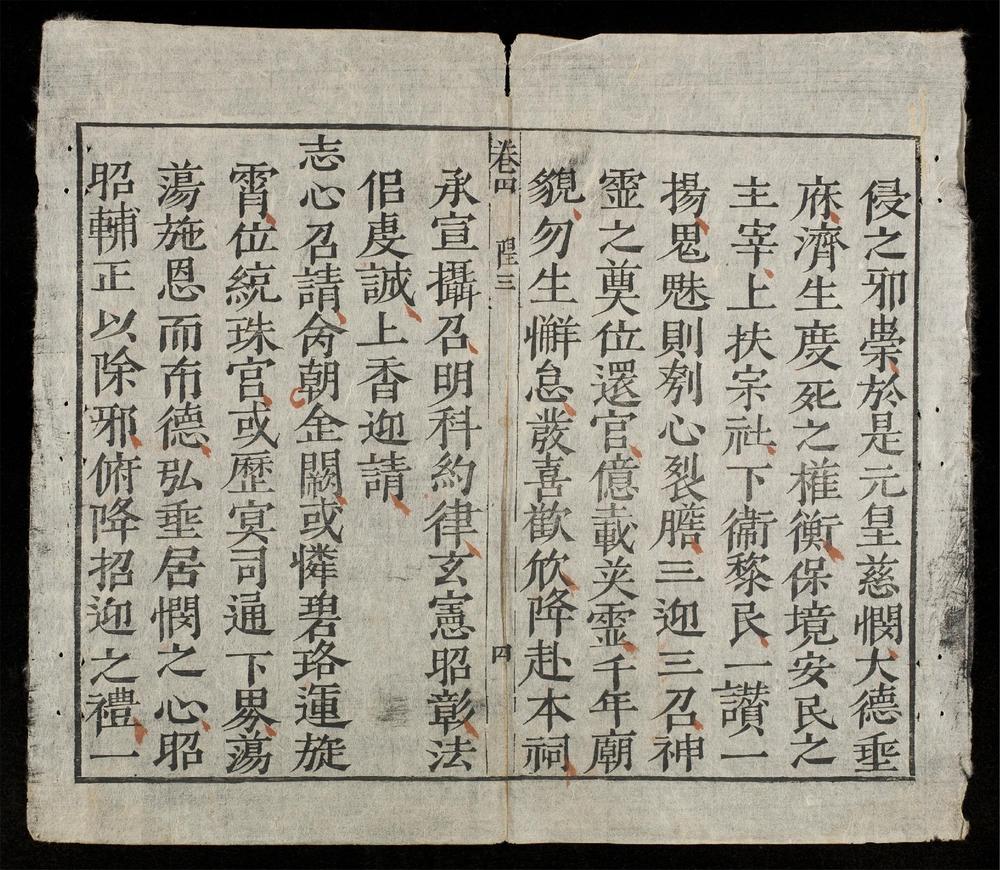 侵之邪祟於是元皇慈憫大德垂
庥濟生度死之權衡保境安民之
主宰上扶宗社下衞黎民一讃一
揚鬼魅則刳心裂膽三迎三召神
霊之奠位還官億載英霊千年廟
貌勿生懈怠發喜歡欣降赴本祠
卷四 程三 四
承宣攝召明科約律玄憲昭彰法
侶虔誠上香迎請
志心召請肏朝金闕或憐碧珞運旋
霄位統珠官或歷冥司通下界蕩
蕩施恩而布德弘垂居憫之心昭
昭輔正以除邪俯降招迎之禮一